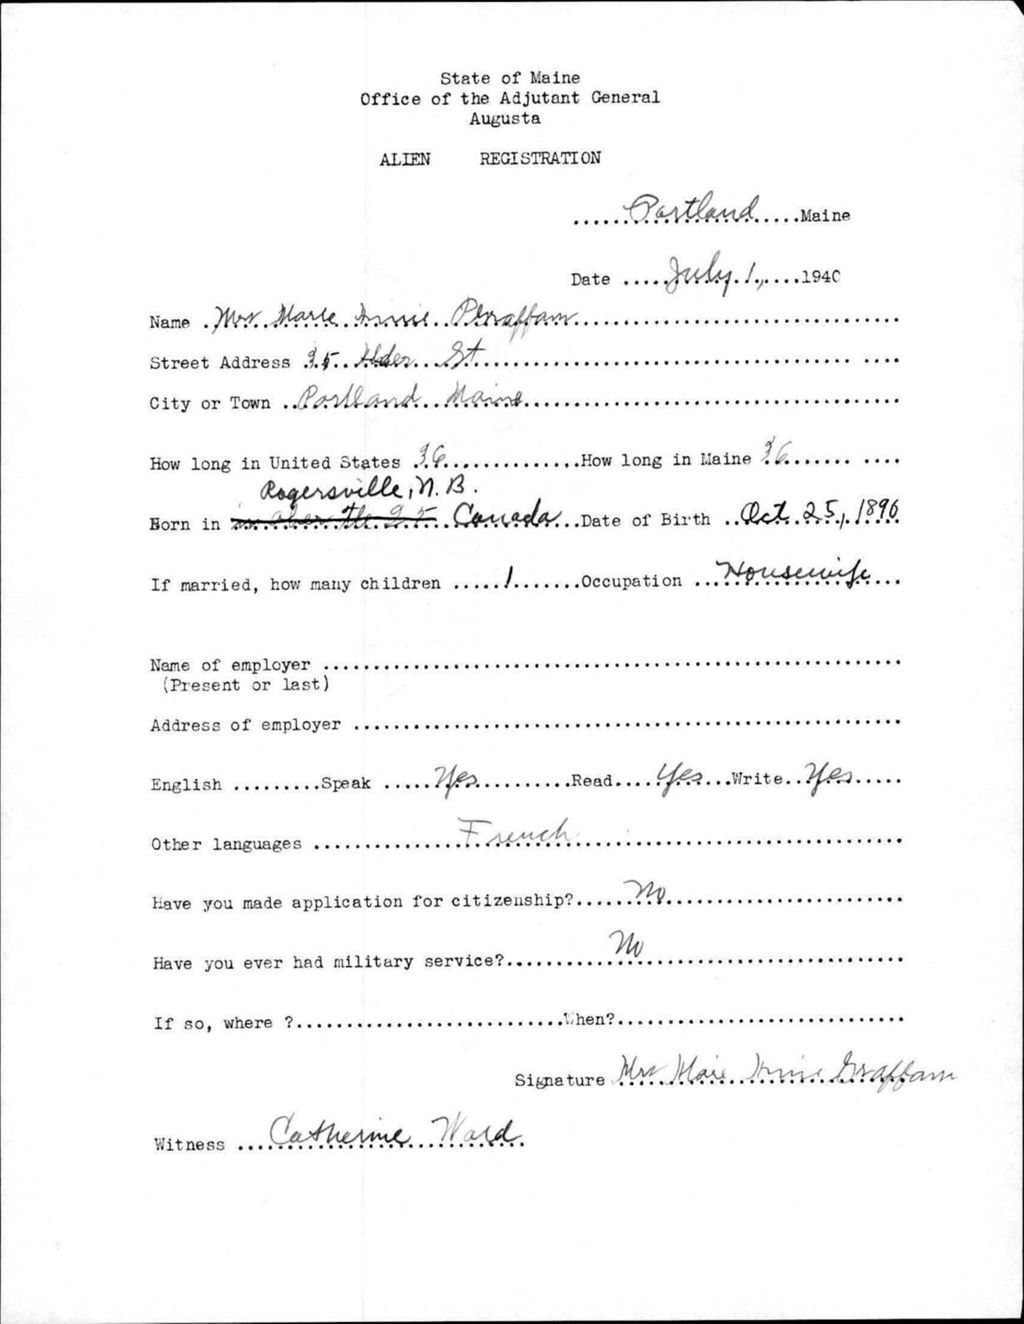 State of Maine
Office of the Adjutant General
Augusta
ALIEN REGISTRATION
......Portland.....Maine
Date .....July 1,....1940
Name .Mrs. Marie Annie Graffam
Street Address 35 Alder St
City or Town ..Portland Maine
How long in United States .36..............How long in Maine 36
Rogersville, N.B.
Born in Canada...Date of Birth ..Oct. 25, 1896
If married, how many children .....1.......Occupation ...Housewife...
Name of employer
(Present or last)
Address of employer
English .........Speak .....Yes..........Read....Yes...Write..Yes.....
Other languages ...............French
Have you made application for citizenship?......No
Have you ever had military service?...........No
If so, where ?...........................When?
Signature Mrs Marie Annie Graffam
Witness ....Catherine Ward